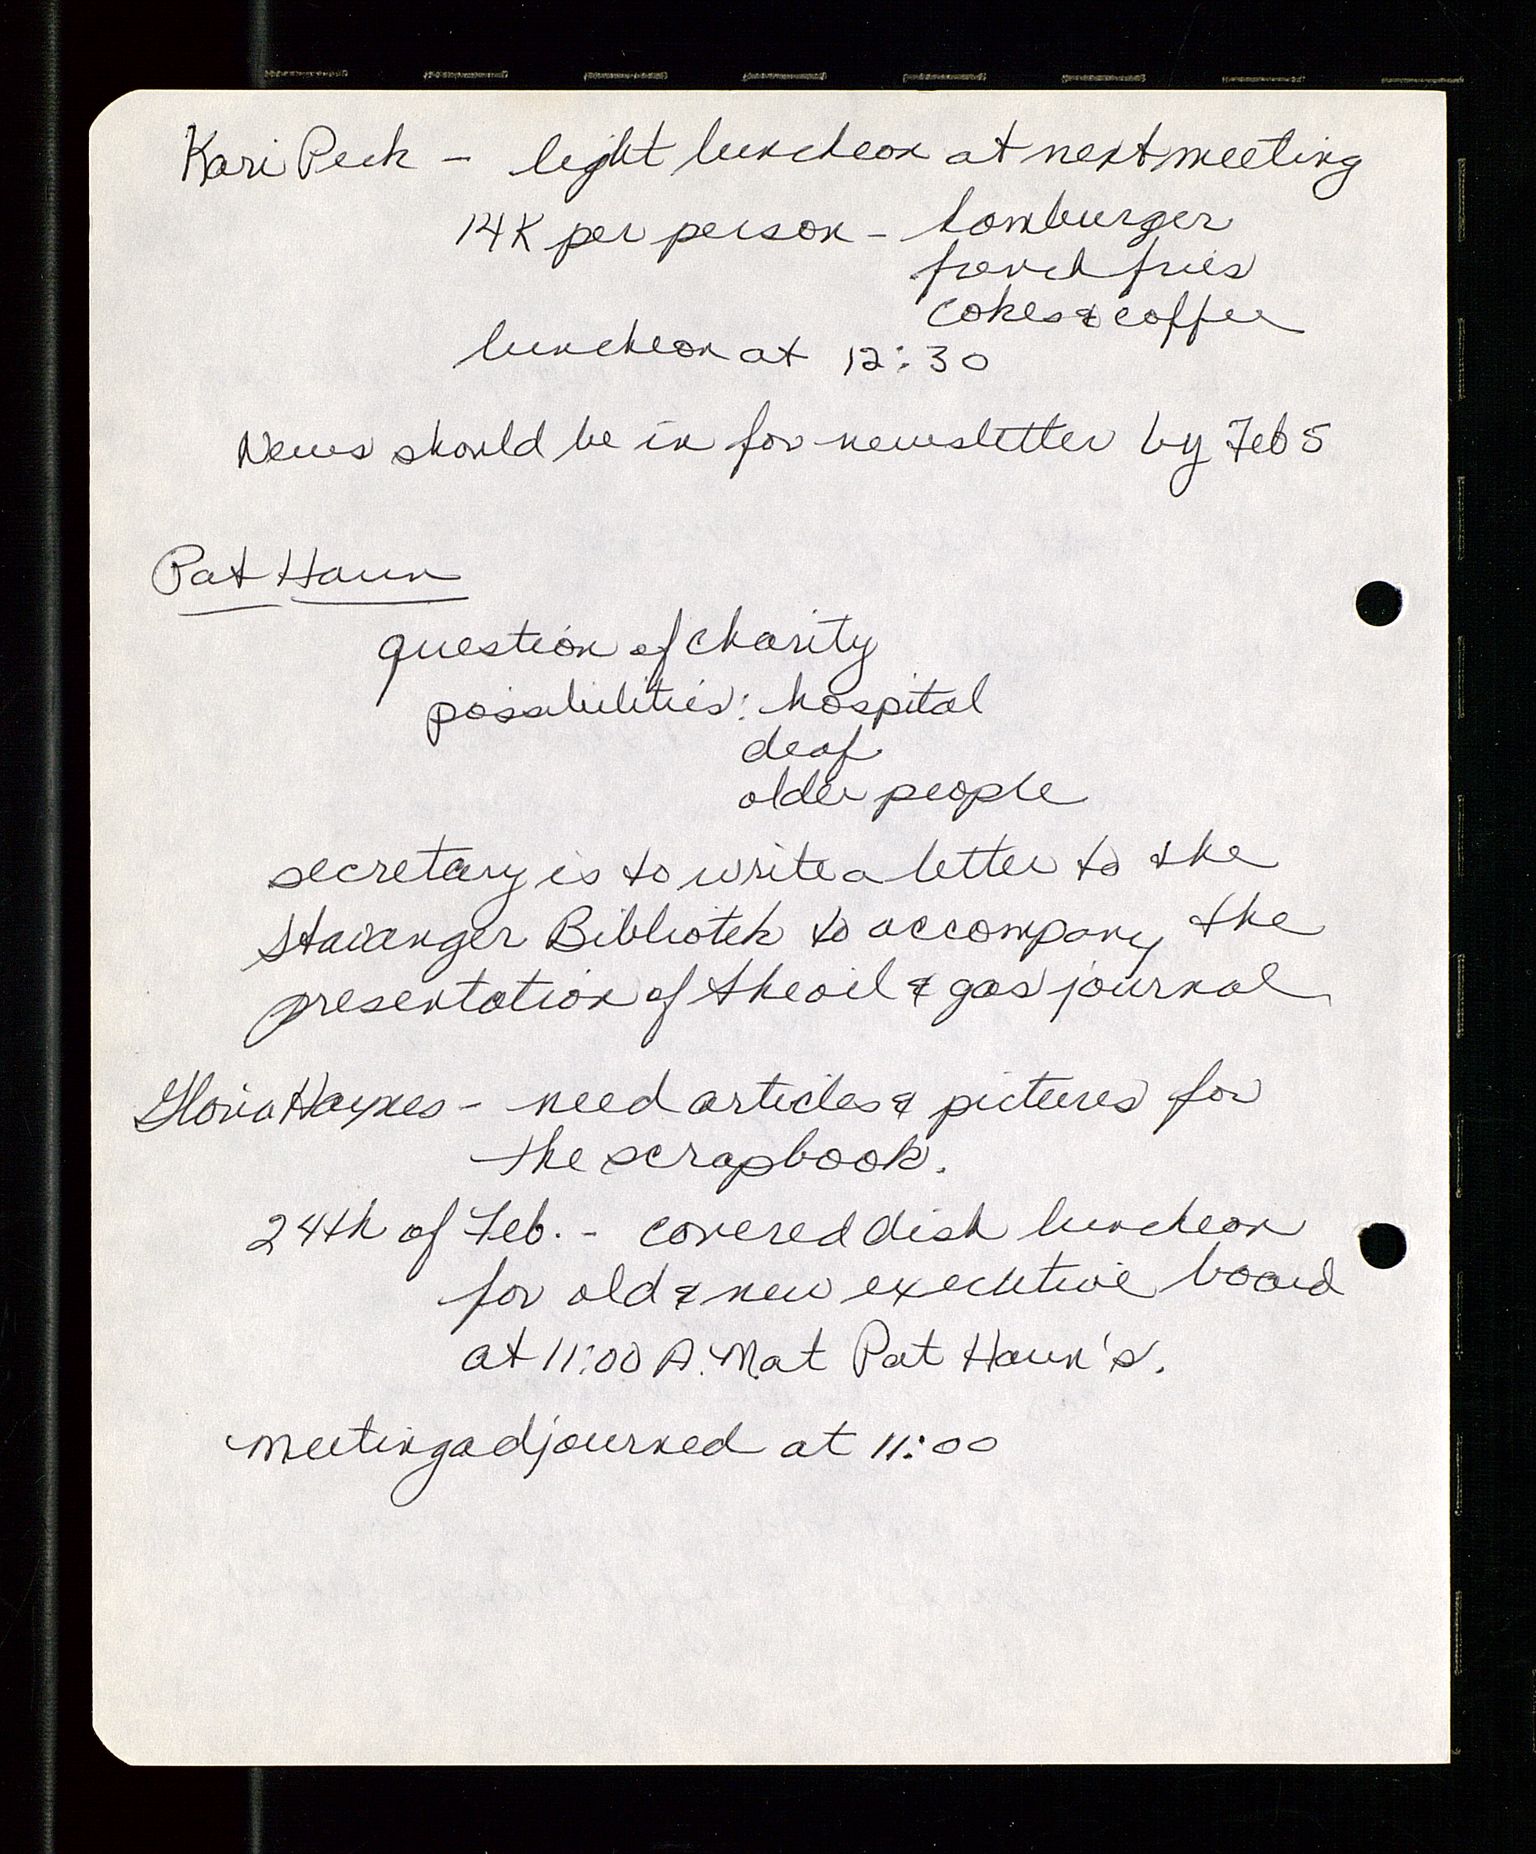 Kari Peck - light luncheon at next meeting
14K per person - hamburger
french fries
cokes & coffee
luncheon at 12:30
News should be in for newsletter by Feb 5
Pat Haun
question of charity
possibilities: hospital
deaf
older people
secretary is to write a letter to the
Stavanger Bibliotek to accompany the
presentation of the oil & gas journal
Gloria Haynes - need articles & pictures for
the scrapbook.
24th of Feb. - covered dish luncheon
for old & new executive board
at 11:00 A.M. at Pat Haun's.
meeting adjourned at 11:00